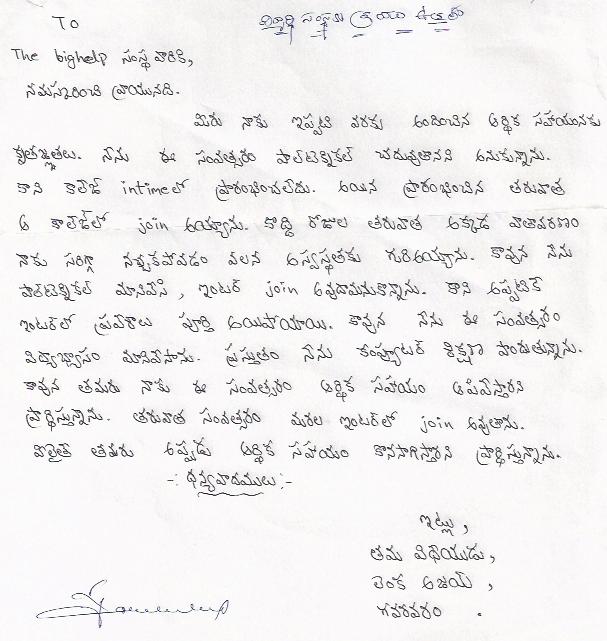 విద్యార్థి సంస్థకు వ్రాయు ఉత్తరం
To
The bighelp సంస్థ వారికి,
నమస్కరించి వ్రాయునది.
మీరు నాకు ఇప్పటి వరకు అందించిన ఆర్థిక సహాయనకు
కృతజ్ఞతలు. నేను ఈ సంవత్సరం పాలిటెక్నికల్ చదువుతానని అనుకున్నాను.
కాని కాలేజ్ intime లో ప్రారంభించలేదు. అయిన ప్రారంభించిన తరువాత
ఆ కాలేజ్‌లో join అయ్యాను. కొద్ది రోజుల తరువాత అక్కడ వాతావరణం
నాకు సరిగ్గా నచ్చకపోవడం వలన అస్వస్థతకు గురిఅయ్యాను. కావున నేను
పాలిటెక్నికల్ మానివేసి, ఇంటర్ join అవ్వదామనుకొన్నాను. కాని అప్పటికే
ఇంటర్‌లో ప్రవేశాలు పూర్తి అయిపోయాయి. కావున నేను ఈ సంవత్సరం
విద్యాభ్యాసం మానివేసాను. ప్రస్తుతం నేను కంప్యూటర్ శిక్షణ పొందుతున్నాను.
కావున తమరు నాకు ఈ సంవత్సరం ఆర్థిక సహాయం ఆపివేస్తారని
ప్రార్థిస్తున్నాను. తరువాత సంవత్సరం మరల ఇంటర్‌లో join అవుతాను.
వీలైతే తమరు అప్పుడు ఆర్థిక సహాయం కొనసాగిస్తారని ప్రార్థిస్తున్నాను.
-: ధన్యవాదములు :-
ఇట్లు,
తమ విధేయుడు,
లెంక అజయ్,
గవరవరం.